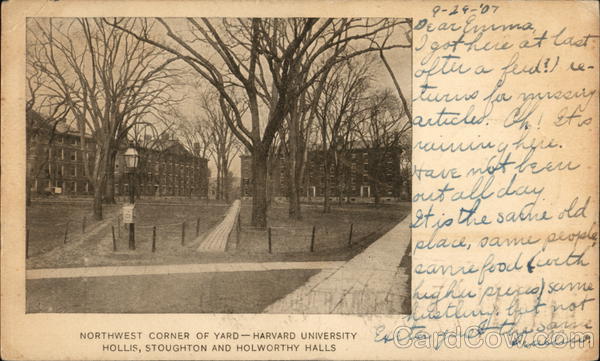 9-29-'07
Dear Emma,
I got here at last
after a few(!) re-
turns for missing
articles. Oh! It is
raining here.
Have not been
out all day
It is the same old
place, same people,
same food (with
higher prices) same
but not
the same
NORTHWEST CORNER OF YARD—HARVARD UNIVERSITY
HOLLIS, STOUGHTON AND HOLWORTHY HALLS
CardCow.com